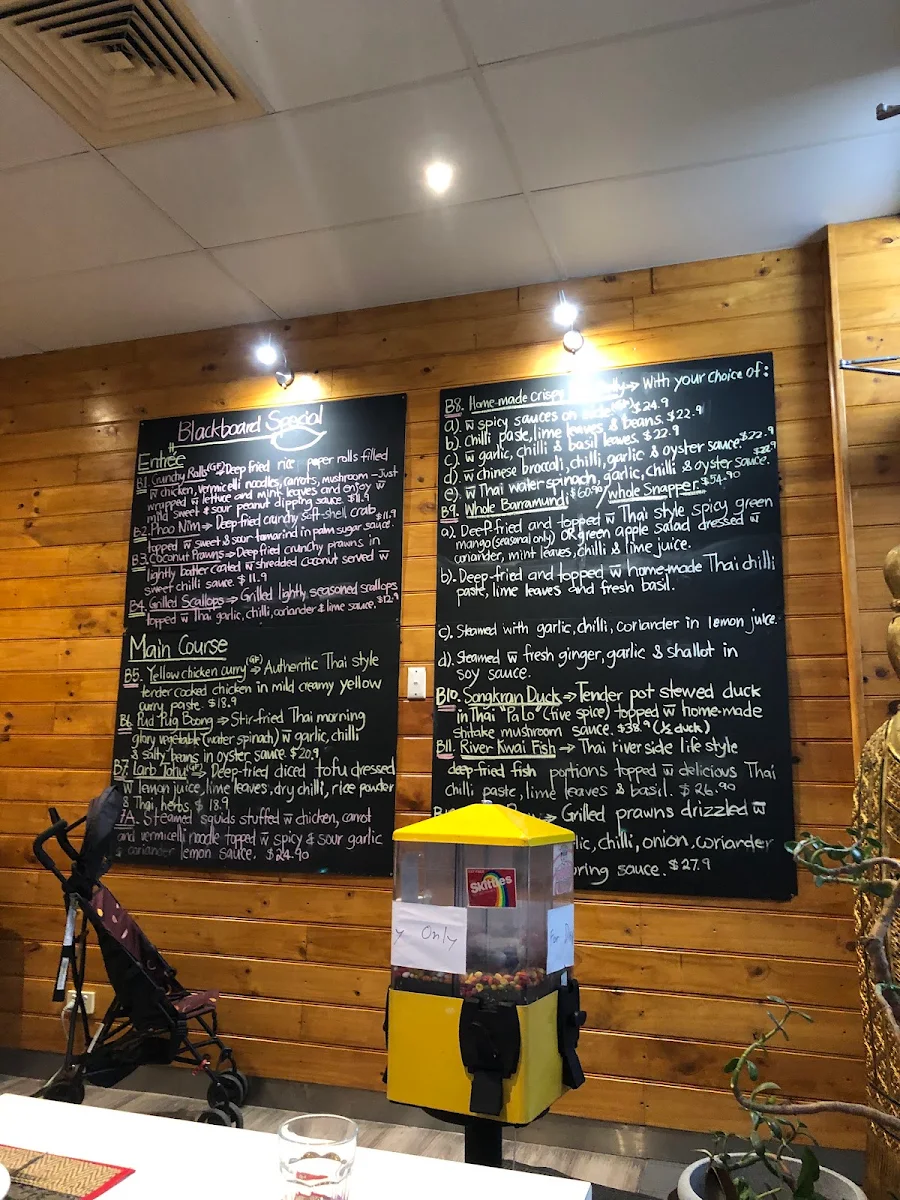 Blackboard Special
Entrée
B1. Crunchy Rolls (GF) → Deep fried rice paper rolls filled
w̄ chicken, vermicelli noodles, carrots, mushroom - Just
wrapped w̄ lettuce and mint leaves and enjoy w̄
mild sweet & sour peanut dipping sauce. $11.9
B2. Phoo Nim → Deep fried crunchy soft-shell crab
topped w̄ sweet & sour tamarind in palm sugar sauce. $11.9
B3. Coconut Prawns → Deep fried crunchy prawns in
lightly batter coated w̄ shredded coconut served w̄
sweet chilli sauce. $11.9
B4. Grilled Scallops → Grilled lightly, seasoned scallops
topped w̄ Thai garlic, chilli, coriander & lime sauce. $12.9
Main Course
B5. Yellow chicken curry (GF) → Authentic Thai style
tender cooked chicken in mild creamy yellow
curry paste. $18.9
B6. Pud Pug Boong → Stir-fried Thai morning
glory vegetable (water spinach) w̄ garlic, chilli
& salty beans in oyster sauce. $20.9
B7. Larb Tofu (GF) → Deep-fried diced tofu dressed
w̄ lemon juice, lime leaves, dry chilli, rice powder
& Thai herbs. $18.9
7A. Steamed squids stuffed w̄ chicken, carrot
and vermicelli noodle topped w̄ spicy & sour garlic
& coriander lemon sauce. $24.90
B8. Home-made crispy → With your choice of:
a). w̄ spicy sauces on $24.9
b). chilli paste, lime leaves & beans. $22.9
c). w̄ garlic, chilli & basil leaves. $22.9
d). w̄ chinese broccoli, chilli, garlic & oyster sauce. $22.9
e). w̄ Thai water spinach, garlic, chilli & oyster sauce. $22.9
B9. Whole Barramundi $60.90 / whole Snapper. $54.90
a). Deep fried and topped w̄ Thai style spicy green
mango (seasonal only) OR green apple salad dressed w̄
coriander, mint leaves, chilli & lime juice.
b). Deep-fried and topped w̄ home-made Thai chilli
paste, lime leaves and fresh basil.
c). Steamed with garlic, chilli, coriander in lemon juice.
d). Steamed w̄ fresh ginger, garlic & shallot in
soy sauce.
B10. Songkran Duck → Tender pot stewed duck
in Thai "Pa Lo" (five spice) topped w̄ home-made
shitake mushroom sauce. $38.9 (½ duck)
B11. River Kwai Fish → Thai river side life style
deep-fried fish portions topped w̄ delicious Thai
chilli paste, lime leaves & basil. $26.90
→ Grilled prawns drizzled w̄
lic, chilli, onion, coriander
ring sauce. $27.9
Skittles
y Only
For